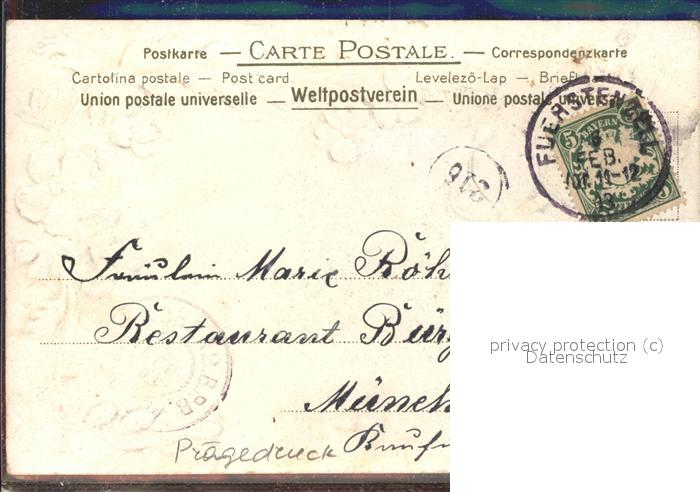 Postkarte — CARTE POSTALE. — Correspondenzkarte
Cartolina postale — Post card Levelező-Lap — Briefkaart
Union postale universelle — Weltpostverein — Unione postale universale
FUERSTENZELL
5 BAYERN
FEB.
11-12
03
Fräulein Marie Röh
Restaurant Bürg
Münch
Prägedruck
privacy protection (c)
Datenschutz